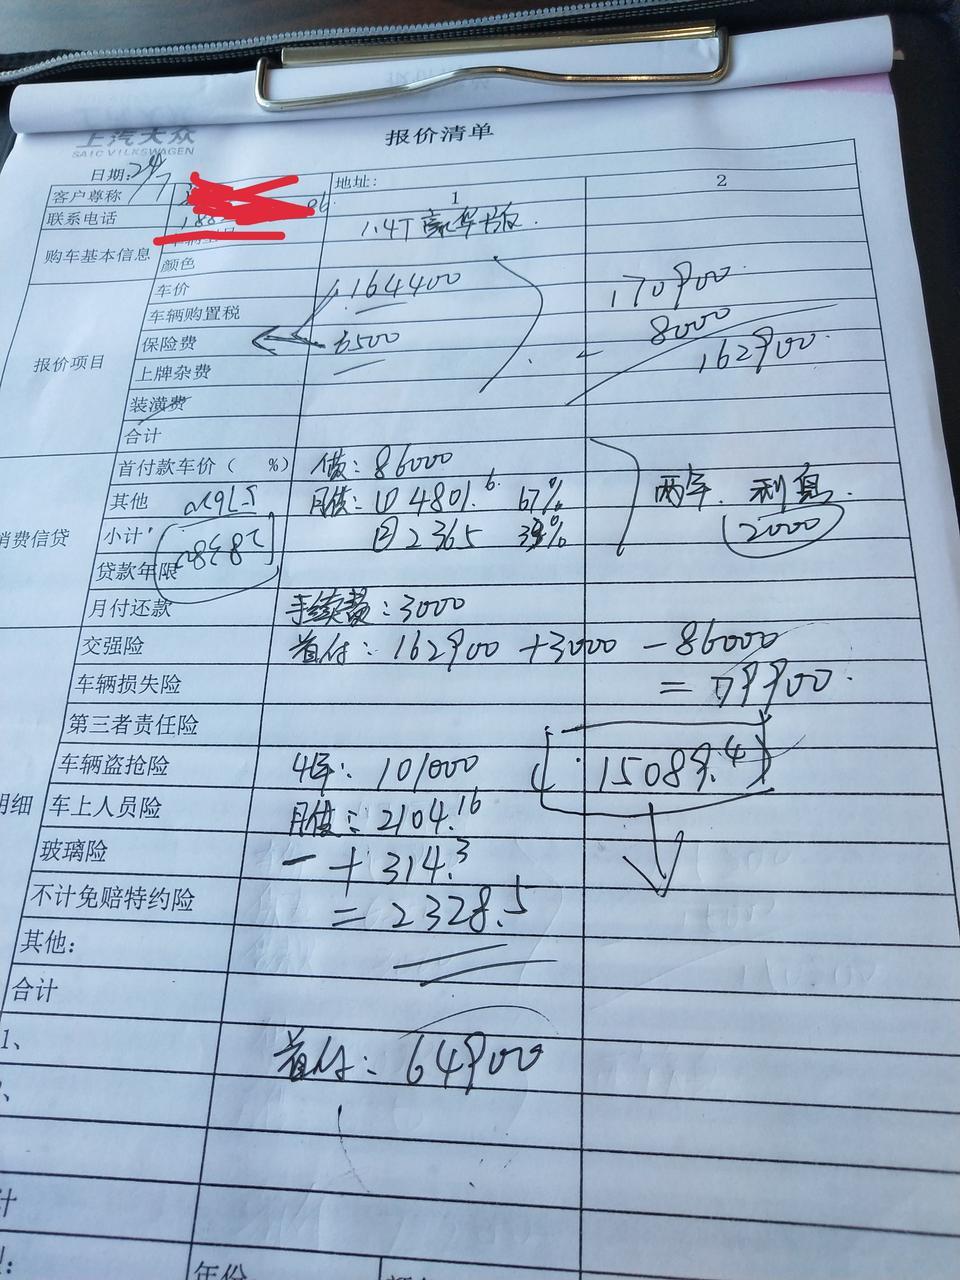 上汽大众
SAIC VOLKSWAGEN
报价清单
日期: 24/7
客户尊称
地址:
联系电话
1
2
购车基本信息
1.4T 豪华版.
颜色
报价项目
车价 164400 170900
车辆购置税 8000
保险费 6500 - 162900.
上牌杂费
装潢费
合计
首付款车价（ %） 贷: 86000
其他 月供: ① 4801.6 67% 两年. 利息.
小计 ② 2365 33% 2000
消费信贷
贷款年限
月付还款 手续费: 3000
交强险 首付: 162900 +3000 -86000
车辆损失险 = 79900.
第三者责任险
车辆盗抢险 4年: 101000 15089.4
明细
车上人员险 月供: 2104.16
玻璃险 + 314.3
不计免赔特约险 = 2328.5
其他:
合计
1、
首付: 64900
计
年份